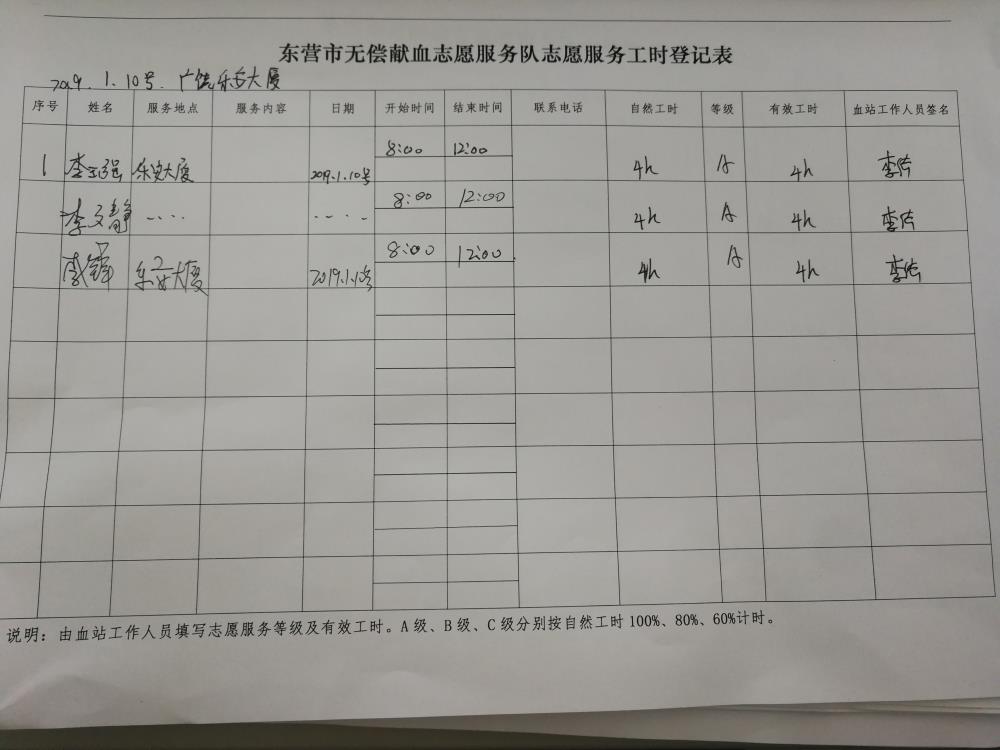 东营市无偿献血志愿服务队志愿服务工时登记表
2019.1.10号. 广饶乐安大厦
序号 姓名 服务地点 服务内容 日期 开始时间 结束时间 联系电话 自然工时 等级 有效工时 血站工作人员签名
1 李玉强 乐安大厦 2019.1.10号 8:00 12:00 4h A 4h
李文静 .... .... 8:00 12:00 4h A 4h
乐安大厦 2019.1.10号 8:00 12:00 4h A 4h
说明：由血站工作人员填写志愿服务等级及有效工时。A级、B级、C级分别按自然工时100%、80%、60%计时。